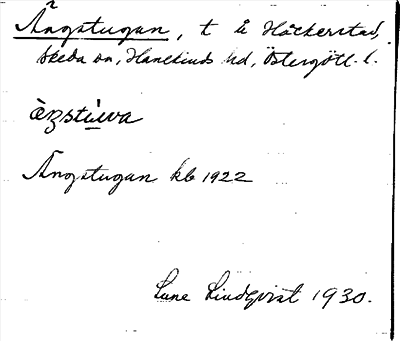 Ängstugan, t Å Häckerstad,
Skeda sn, Hanekinds hd, Östergötl. l.
äŋstùwa
Ängstugan kb 1922
Sune Lindqvist 1930.